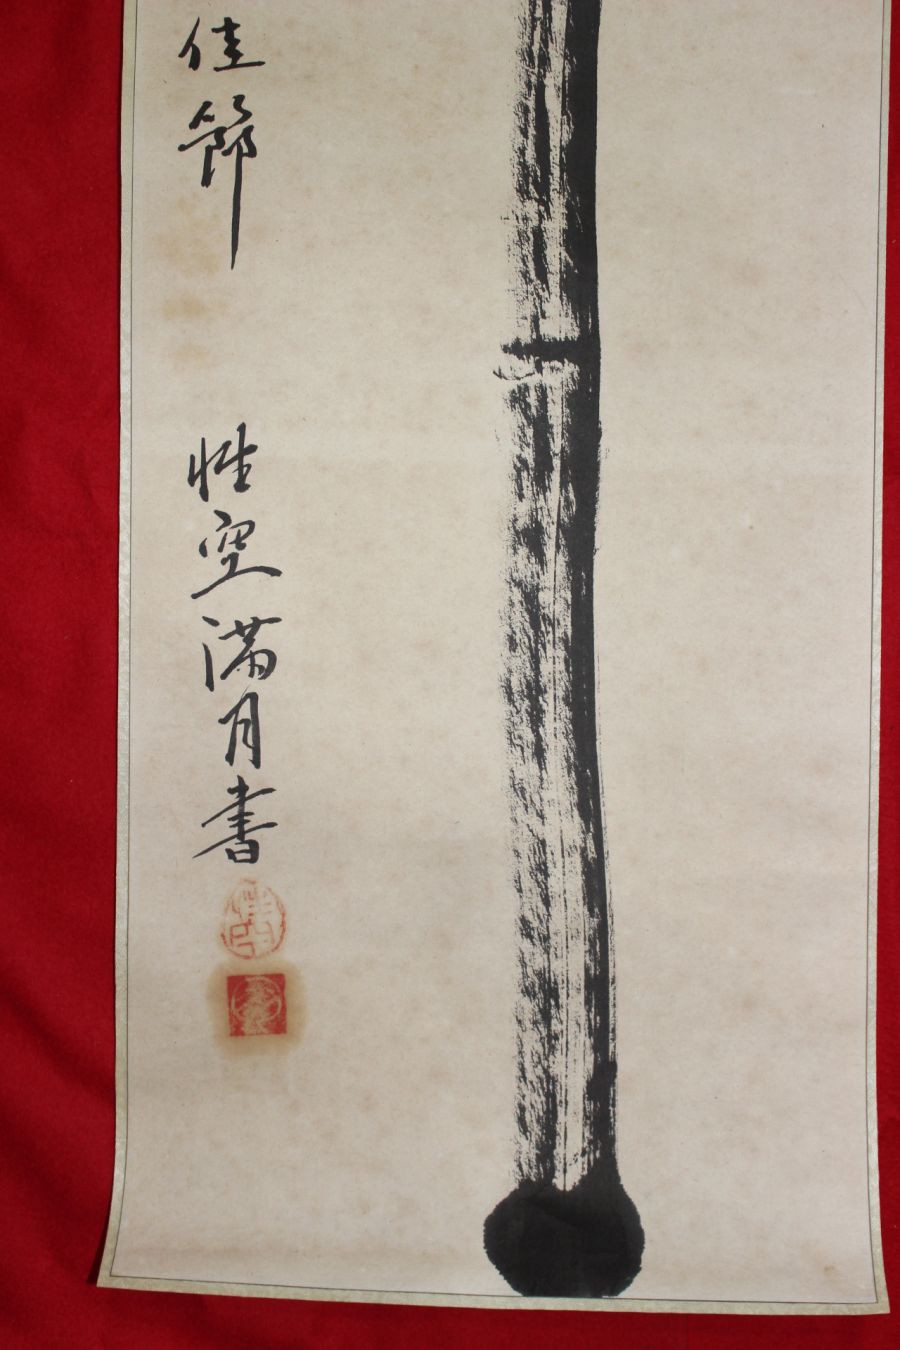 佳節 性空満月書